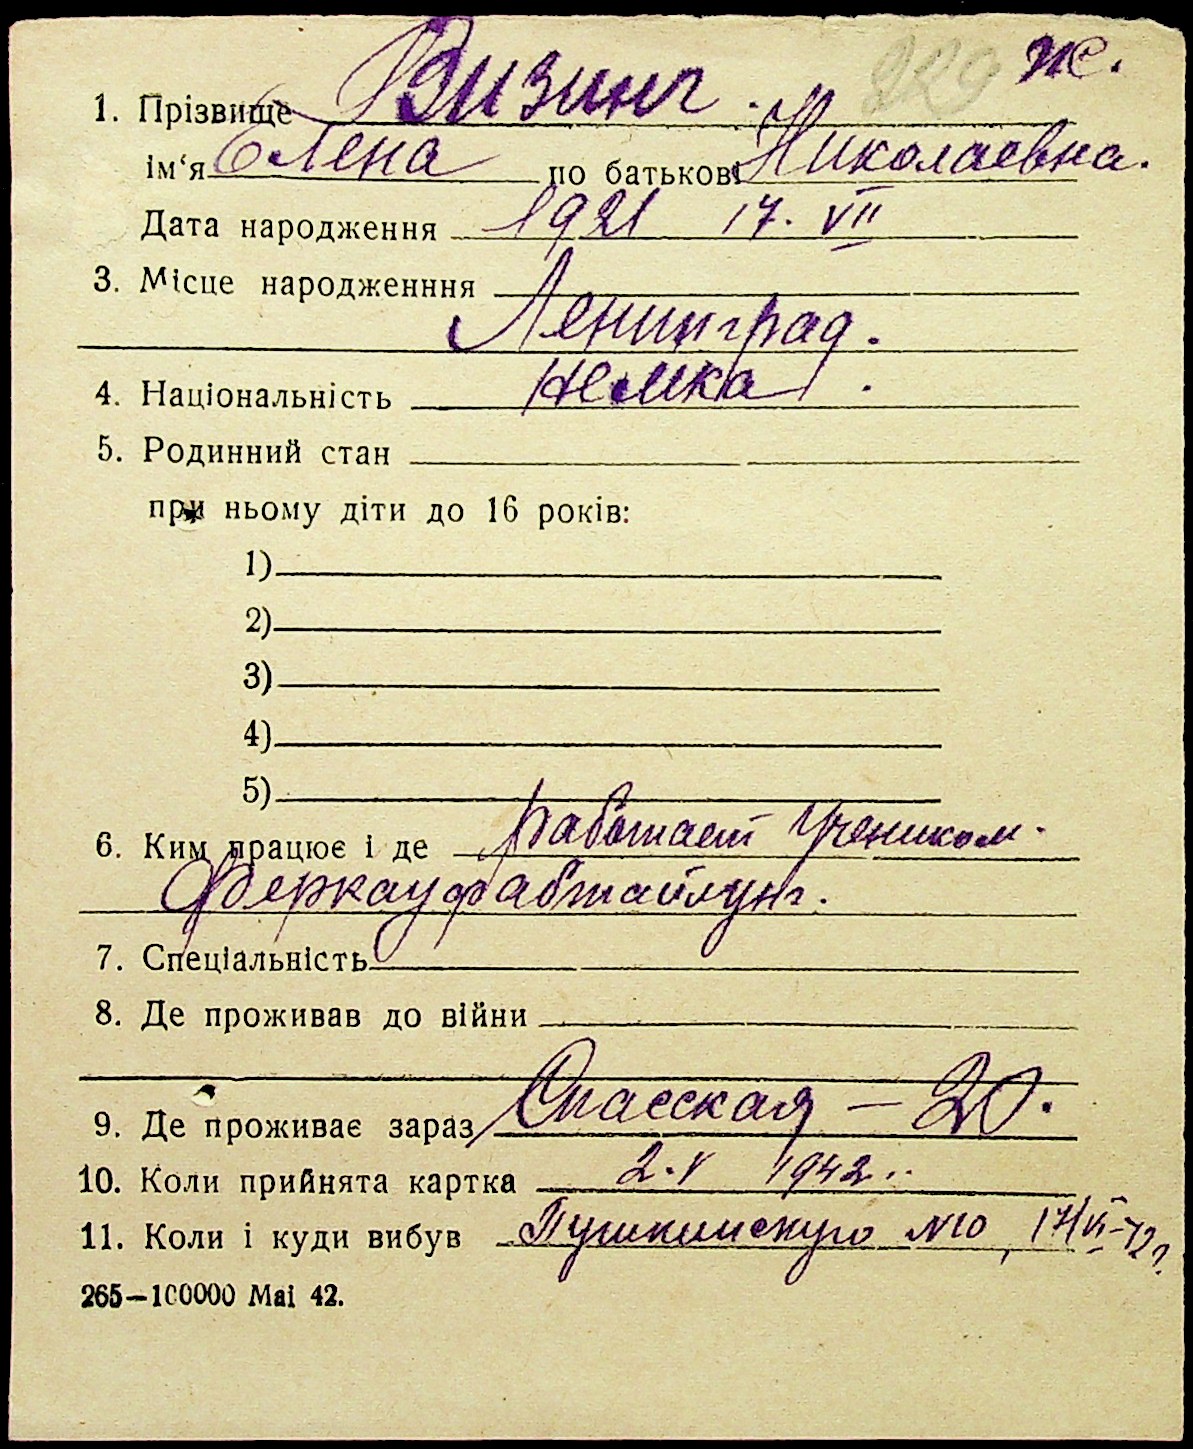 229 ж.
1. Прізвище Визинг.
ім‘я Елена по батькові Николаевна.
Дата народження 1921 17. VII
3. Місце народженння
Ленинград.
4. Національність немка.
5. Родинний стан
при ньому діти до 16 років:
1)
2)
3)
4)
5)
6. Ким працює і де работает учеником.
Феркауфабтайлунг.
7. Спеціальність
8. Де проживав до війни
9. Де проживає зараз Спасская — 20.
10. Коли прийнята картка 2.V 1942.
11. Коли і куди вибув Пушкинскую №10, 17/VI-42г.
265—100000 Mai 42.